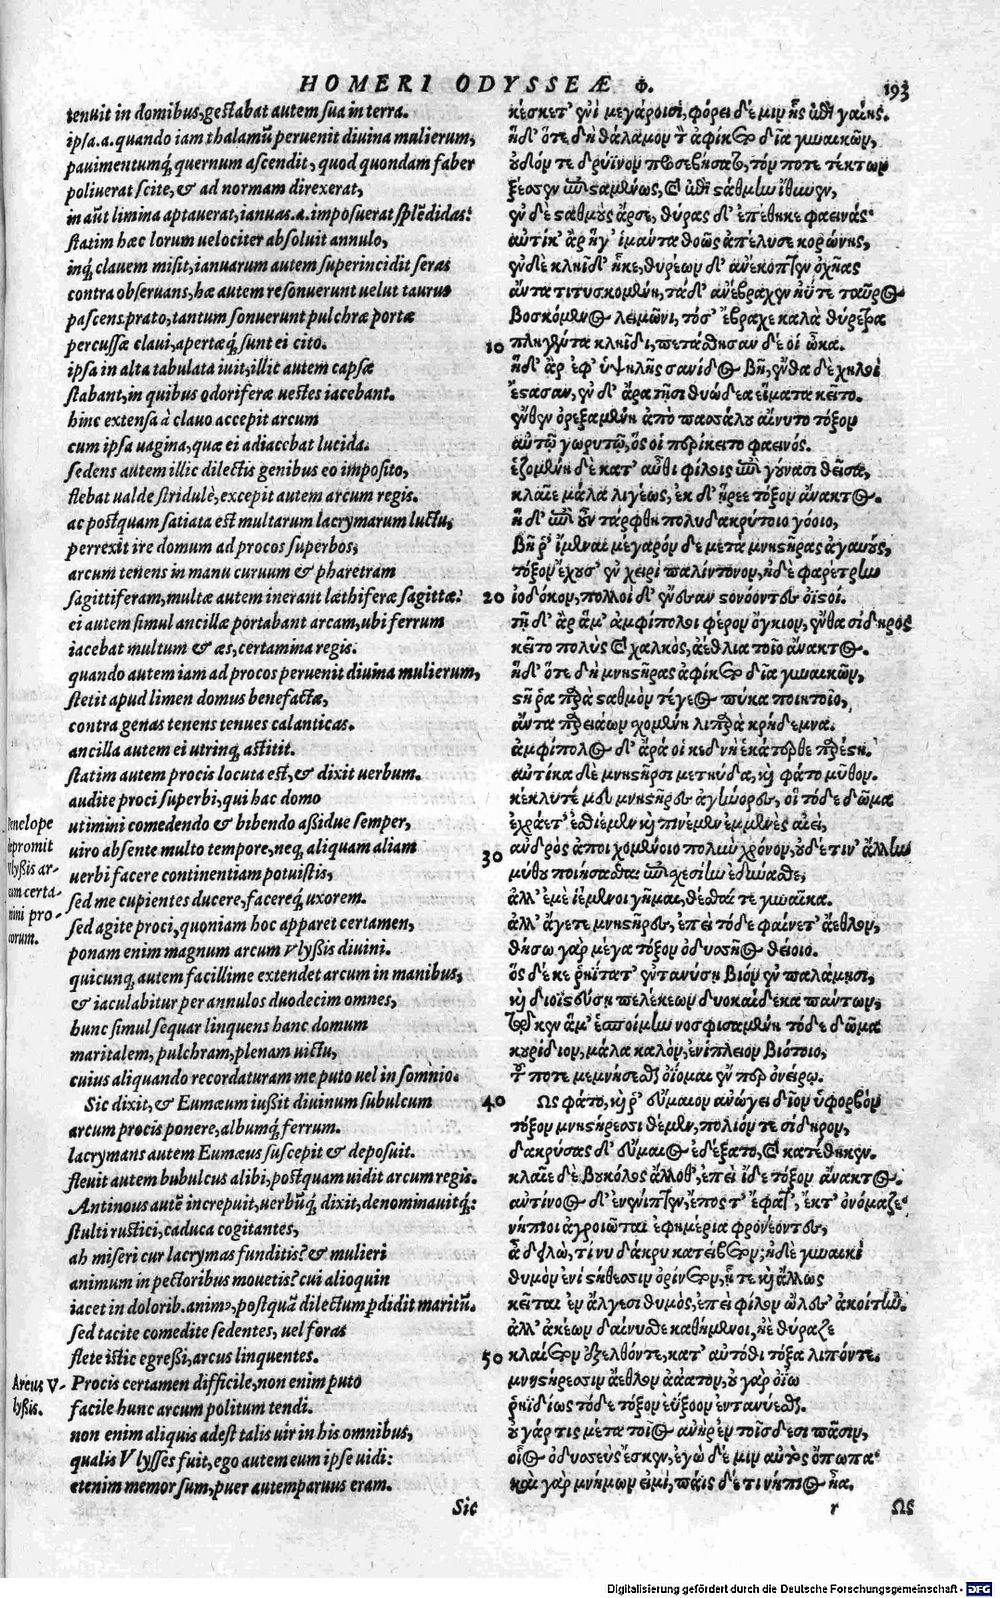 HOMERI ODYSSEÆ Φ. 193
tenuit in domibus, gestabat autem sua in terra.
ipsa.a. quando iam thalamū peruenit diuina mulierum,
pauimentumq́; quernum ascendit, quod quondam faber
poliuerat scite, & ad normam direxerat,
in aūt limina aptauerat, ianuas.a. imposuerat splēdidas:
statim hæc lorum uelociter absoluit annulo,
inq́; clauem misit, ianuarum autem superincidit seras
contra obseruans, hæ autem resonuerunt uelut taurus
pascens prato, tantum sonuerunt pulchræ portæ
percussæ claui, apertæq́; sunt ei cito.
ipsa in alta tabulata iuit, illic autem capsæ
stabant, in quibus odoriferæ uestes iacebant.
hinc extensa à clauo accepit arcum
cum ipsa uagina, quæ ei adiacebat lucida.
sedens autem illic dilectis genibus eo imposito,
flebat ualde stridulè, excepit autem arcum regis.
ac postquam satiata est multarum lacrymarum luctu,
perrexit ire domum ad procos superbos,
arcum tenens in manu curuum & pharetram
sagittiferam, multæ autem inerant læthiferæ sagittæ:
ei autem simul ancillæ portabant arcam, ubi ferrum
iacebat multum & æs, certamina regis.
quando autem iam ad procos peruenit diuina mulierum,
stetit apud limen domus benefactæ,
contra genas tenens tenues calanticas.
ancilla autem ei utrinq; astitit.
statim autem procis locuta est, & dixit uerbum.
audite proci superbi, qui hac domo
utimini comedendo & bibendo aßidue semper,
uiro absente multo tempore, neq; aliquam aliam
uerbi facere continentiam potuistis,
sed me cupientes ducere, facereq́; uxorem.
sed agite proci, quoniam hoc apparet certamen,
ponam enim magnum arcum Vlyßis diuini.
quicunq; autem facillime extendet arcum in manibus,
& iaculabitur per annulos duodecim omnes,
hunc simul sequar linquens hanc domum
maritalem, pulchram, plenam uictu,
cuius aliquando recordaturam me puto uel in somnio.
Sic dixit, & Eumæum iußit diuinum subulcum
arcum procis ponere, albumq́; ferrum.
lacrymans autem Eumæus suscepit & deposuit.
fleuit autem bubulcus alibi, postquam uidit arcum regis.
Antinous autē increpuit, uerbūq́; dixit, denominauitq́;:
stulti rustici, caduca cogitantes,
ah miseri cur lacrymas funditis? & mulieri
animum in pectoribus mouetis? cui alioquin
iacet in dolorib. animus, postquā dilectum pdidit maritū.
sed tacite comedite sedentes, uel foras
flete istic egreßi, arcus linquentes.
Procis certamen difficile, non enim puto
facile hunc arcum politum tendi.
non enim aliquis adest talis uir in his omnibus,
qualis Vlysses fuit, ego autem eum ipse uidi:
etenim memor sum, puer autem paruus eram.
Sic
Penelope
depromit
Vlyßis ar-
cum certa-
mini pro-
corum.
Arcus V-
lyßis.
κέσκετ' ἐνὶ μεγάροισι, φόρει δέ μιν ἧς ἐπὶ γαίης.
ἡ δ' ὅτε δὴ θάλαμον τὸν ἀφίκετο δῖα γυναικῶν,
οὐδόν τε δρύϊνον προσεβήσατο, τόν ποτε τέκτων
ξέσσεν ἐπισταμένως, καὶ ἐπὶ στάθμην ἴθυνεν,
ἐν δὲ σταθμοὺς ἄρσε, θύρας δ' ἐπέθηκε φαεινάς·
αὐτίκ' ἄρ ἥγ' ἱμάντα θοῶς ἀπέλυσε κορώνης,
ἐν δὲ κληῖδ' ἧκε, θυρέων δ' ἀνέκοπτεν ὀχῆας
ἄντα τιτυσκομένη, τὰ δ' ἀνέβραχεν ἠΰτε ταῦρος
βοσκόμενος λειμῶνι, τόσ' ἔβραχε καλὰ θύρετρα
10 πληγέντα κληῖδι, πετάσθησαν δέ οἱ ὦκα.
ἡ δ' ἄρ ἐφ' ὑψηλῆς σανίδος βῆ, ἔνθα δὲ χηλοὶ
ἕστασαν, ἐν δ' ἄρα τῇσι θυώδεα εἵματα κεῖτο.
ἔνθεν ὀρεξαμένη ἀπὸ πασσάλου αἴνυτο τόξον
αὐτῷ γωρυτῷ, ὅς οἱ περίκειτο φαεινός.
ἑζομένη δὲ κατ' αὖθι φίλοις ἐπὶ γούνασι θεῖσα,
κλαῖε μάλα λιγέως, ἐκ δ' ᾕρεε τόξον ἄνακτος.
ἡ δ' ἐπεὶ οὖν τάρφθη πολυδακρύτοιο γόοιο,
βῆ ῥ' ἴμεναι μέγαρόν δε μετὰ μνηστῆρας ἀγαυούς,
τόξον ἔχουσ' ἐν χειρὶ παλίντονον, ἠδὲ φαρέτρην
20 ἰοδόκον, πολλοὶ δ' ἔνεσαν στονόεντες ὀϊστοί.
τῇ δ' ἄρ ἅμ' ἀμφίπολοι φέρον ὄγκιον, ἔνθα σίδηρος
κεῖτο πολὺς καὶ χαλκός, ἀέθλια τοῖο ἄνακτος.
ἡ δ' ὅτε δὴ μνηστῆρας ἀφίκετο δῖα γυναικῶν,
στῆ ῥα παρὰ σταθμὸν τέγεος πύκα ποιητοῖο,
ἄντα παρειάων σχομένη λιπαρὰ κρήδεμνα.
ἀμφίπολος δ' ἄρά οἱ κεδνὴ ἑκάτερθε παρέστη.
αὐτίκα δὲ μνηστῆρσι μετηύδα, καὶ φάτο μῦθον.
κέκλυτέ μευ μνηστῆρες ἀγήνορες, οἳ τόδε δῶμα
ἐχράετ' ἐσθιέμεν καὶ πινέμεν ἐμμενὲς αἰεί,
30 ἀνδρὸς ἀποιχομένοιο πολὺν χρόνον, οὐδέ τιν' ἄλλην
μύθου ποιήσασθαι ἐπισχεσίην ἐδύνασθε,
ἀλλ' ἐμὲ ἱέμενοι γῆμαι, θέσθαι τε γυναῖκα.
ἀλλ' ἄγετε μνηστῆρες, ἐπεὶ τόδε φαίνετ' ἄεθλον,
θήσω γὰρ μέγα τόξον ὀδυσσῆος θείοιο.
ὃς δέ κε ῥηΐτατ' ἐντανύσῃ βιὸν ἐν παλάμῃσι,
καὶ διοϊστεύσῃ πελέκεων δυοκαίδεκα πάντων,
τῷ κεν ἅμ' ἑσποίμην νοσφισαμένη τόδε δῶμα
κουρίδιον, μάλα καλὸν, ἐνίπλειον βιότοιο,
τοῦ ποτε μεμνήσεσθαι ὀΐομαι ἔν περ ὀνείρῳ.
40 Ως φάτο, καί ῥ' εὔμαιον ἀνώγει δῖον ὑφορβὸν
τόξον μνηστήρεσσι θέμεν, πολιόν τε σίδηρον,
δακρύσας δ' εὔμαιος ἐδέξατο, καὶ κατέθηκεν.
κλαῖε δὲ βουκόλος ἄλλοθ', ἐπεὶ ἴδε τόξον ἄνακτος.
ἀντίνοος δ' ἐνένιπτεν, ἔπος τ' ἔφατ', ἔκτ' ὀνόμαζε·
νήπιοι ἀγροιῶται ἐφημέρια φρονέοντες,
ἆ δειλώ, τί νυ δάκρυ κατείβετον; ἠδὲ γυναικὶ
θυμὸν ἐνὶ στήθεσσιν ὀρίνετον, ᾗ τε καὶ ἄλλως
κεῖται ἐν ἄλγεσι θυμός, ἐπεὶ φίλον ὤλεσ' ἀκοίτην.
ἀλλ' ἀκέων δαίνυσθε καθήμενοι, ἠὲ θύραζε
50 κλαίετον ἐξελθόντε, κατ' αὐτόθι τόξα λιπόντε.
μνηστήρεσσιν ἄεθλον ἀάατον, οὐ γὰρ οἴω
ῥηϊδίως τόδε τόξον ἐΰξοον ἐντανύεσθαι.
οὐ γάρ τις μέτα τοῖος ἀνὴρ ἐν τοῖσδεσι πᾶσιν,
οἷος ὀδυσσεὺς ἔσκεν, ἐγὼ δέ μιν αὐτὸς ὄπωπα·
καὶ γὰρ μνήμων εἰμί, πάϊς δ' ἔτι νήπιος ἦα.
r Ως
Digitalisierung gefördert durch die Deutsche Forschungsgemeinschaft - DFG